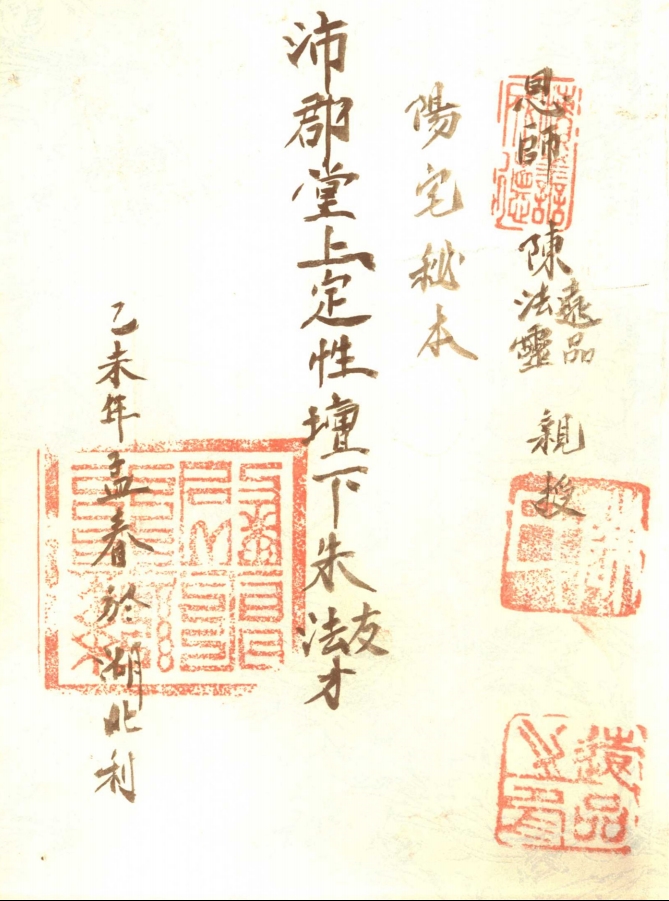 恩師 陳遠品法靈 親授
陽宅秘本
沛郡堂上定性壇下朱友法才
乙未年孟春於湖北利
遠品之印